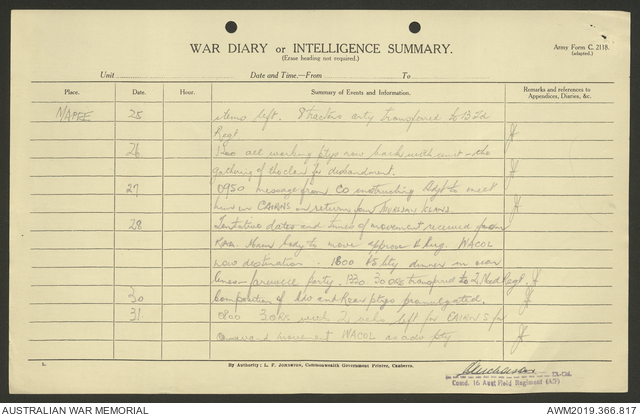 WAR DIARY or INTELLIGENCE SUMMARY.
(Erase heading not required.)
Army Form C. 2118.
(adapted.)
Unit
Date and Time.—From
To
Place.
Date.
Hour.
Summary of Events and Information.
Remarks and references to Appendices, Diaries, &c.
25 items left. tractors arty transferred to
Regt
26 all working ptys now back with unit - the
gathering of the clan for disbandment.
27 0950 message from CO instructing Adjt to meet
him in CAIRNS on return from THURSDAY ISLAND.
28 Tentative dates and times of movement received from
Main body to move approx 6 Aug. WACOL
now destination. 1800 dinner in
farewell party. 30 ORs transferred to Regt.
30 Composition of adv and Rear ptys promulgated.
31 0800 3 ORs with 2 vehs left for CAIRNS for
movement WACOL as adv pty
L.
By Authority: L. F. Johnston, Commonwealth Government Printer, Canberra.
Lt-Col.
Comd. 16 Aust Field Regiment (AIF)
AUSTRALIAN WAR MEMORIAL
AWM2019.366.817